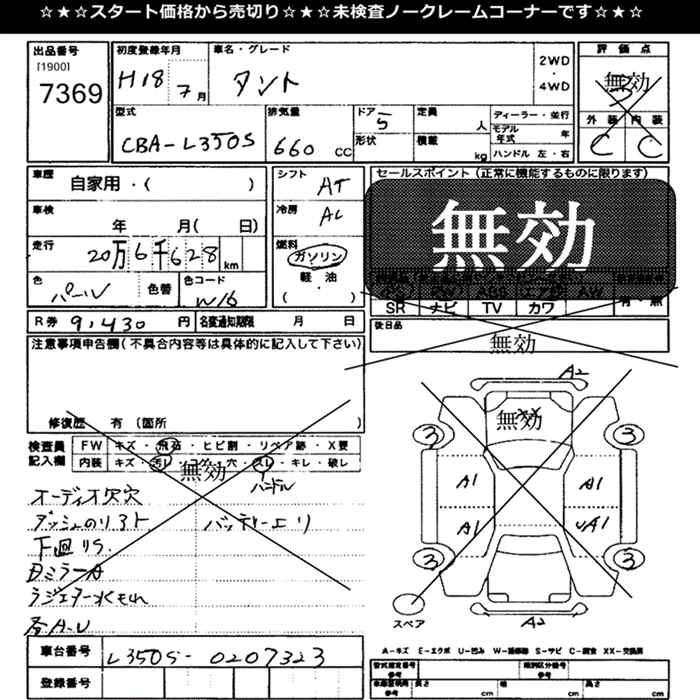 ☆★☆★スタート価格から売切り☆★☆★未検査ノークレームコーナーです☆★☆
出品番号
[1900]
7369
初度登録年月
H18 7月
車名・グレード
タント
2WD
・
4WD
評価点
無効
外装 内装
C C
型式
CBA-L350S
排気量
660 CC
ドア
5
形状
定員
人
積載
kg
ディーラー・並行
モデル年式 年
ハンドル 左・右
車歴
自家用・( )
車検
年 月( 日)
走行
20万6千628km
色
パール
色替
色コード
W16
シフト
AT
冷房
AC
燃料
ガソリン
軽・油
( )
セールスポイント(正常に機能するものに限ります)
無効
SR ナビ TV カワ 有・無
後日品
無効
R券 9,430 円
名変通知期限 月 日
注意事項申告欄(不具合内容等は具体的に記入して下さい)
修復歴 有 〔箇所 〕
検査員
記入欄
FW キズ・飛石・ヒビ割・リペア跡・X要
内装 キズ・汚レ・コゲ・穴・スレ・キレ・破レ
無効
ハンドル
オーディオ欠穴
ダッシュのリ3ト
バッテリーエリ
下廻りS.
ラジエター水もれ
各A-U
車台番号
L350S-0207323
登録番号
無効
A2
3 3
A1 A1
A1 UA1
3 3
スペア
A2
A-キズ E-エクボ U-凹み W-補修跡 S-サビ C-腐食 XX-交換済
型式指定番号
参考
類別区分番号
参考
車両諸元
参考
長さ cm
幅 cm
高さ cm